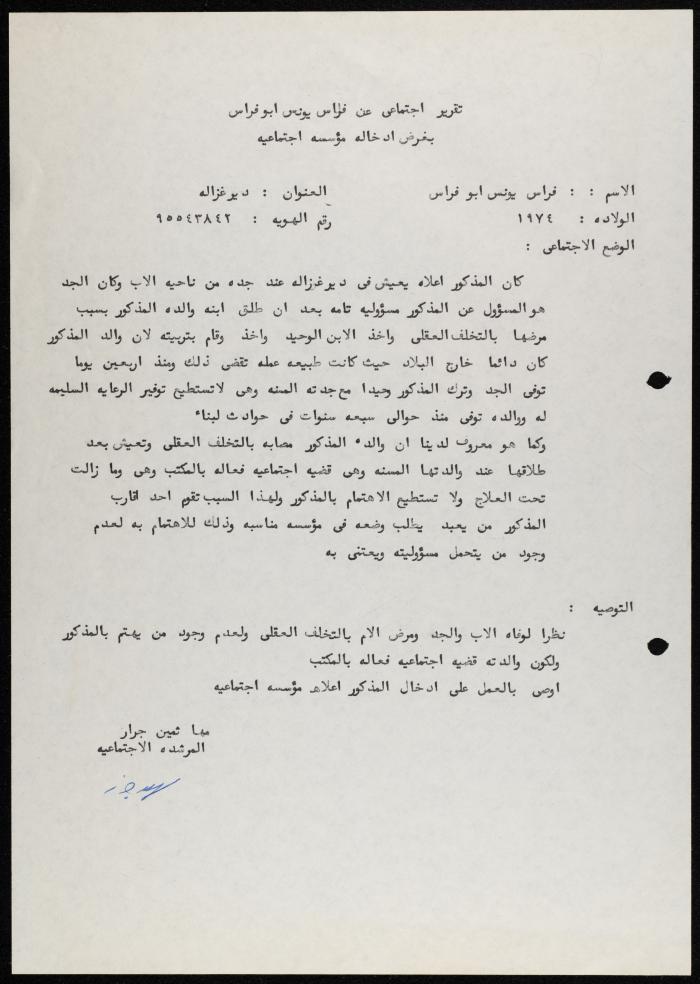 تقرير اجتماعي عن فراس يونس ابو فراس
بغرض ادخاله مؤسسه اجتماعيه
الاسم : : فراس يونس ابو فراس العنوان : ديرغزاله
الولاده : ١٩٧٤ رقم الهويه : ٩٥٥٤٣٨٤٢
الوضع الاجتماعي :
كان المذكور اعلاه يعيش في ديرغزاله عند جده من ناحيه الاب وكان الجد
هو المسؤول عن المذكور مسؤوليه تامه بعد ان طلق ابنه والده المذكور بسبب
مرضها بالتخلف العقلي واخذ الابن الوحيد واخذ وقام بتربيته لان والد المذكور
كان دائما خارج البلاد حيث كانت طبيعه عمله تقضي ذلك ومنذ اربعين يوما
توفى الجد وترك المذكور وحيدا مع جدته المسنه وهي لاتستطيع توفير الرعايه السليمه
له ووالده توفى منذ حوالي سبعه سنوات في حوادث لبناء
وكما هو معروف لدينا ان والده المذكور مصابه بالتخلف العقلي وتعيش بعد
طلاقها عند والدتها المسنه وهي قضيه اجتماعيه فعاله بالمكتب وهي وما زالت
تحت العلاج ولا تستطيع الاهتمام بالمذكور ولهذا السبب تقوم احد اقارب
المذكور من يعبد يطلب وضعه في مؤسسه مناسبه وذلك للاهتمام به لعدم
وجود من يتحمل مسؤوليته ويعتني به
التوصيه :
نظرا لوفاه الاب والجد ومرض الام بالتخلف العقلي ولعدم وجود من يهتم بالمذكور
ولكون والدته قضيه اجتماعيه فعاله بالمكتب
اوصي بالعمل على ادخال المذكور اعلاه مؤسسه اجتماعيه
مها ثمين جرار
المرشده الاجتماعيه